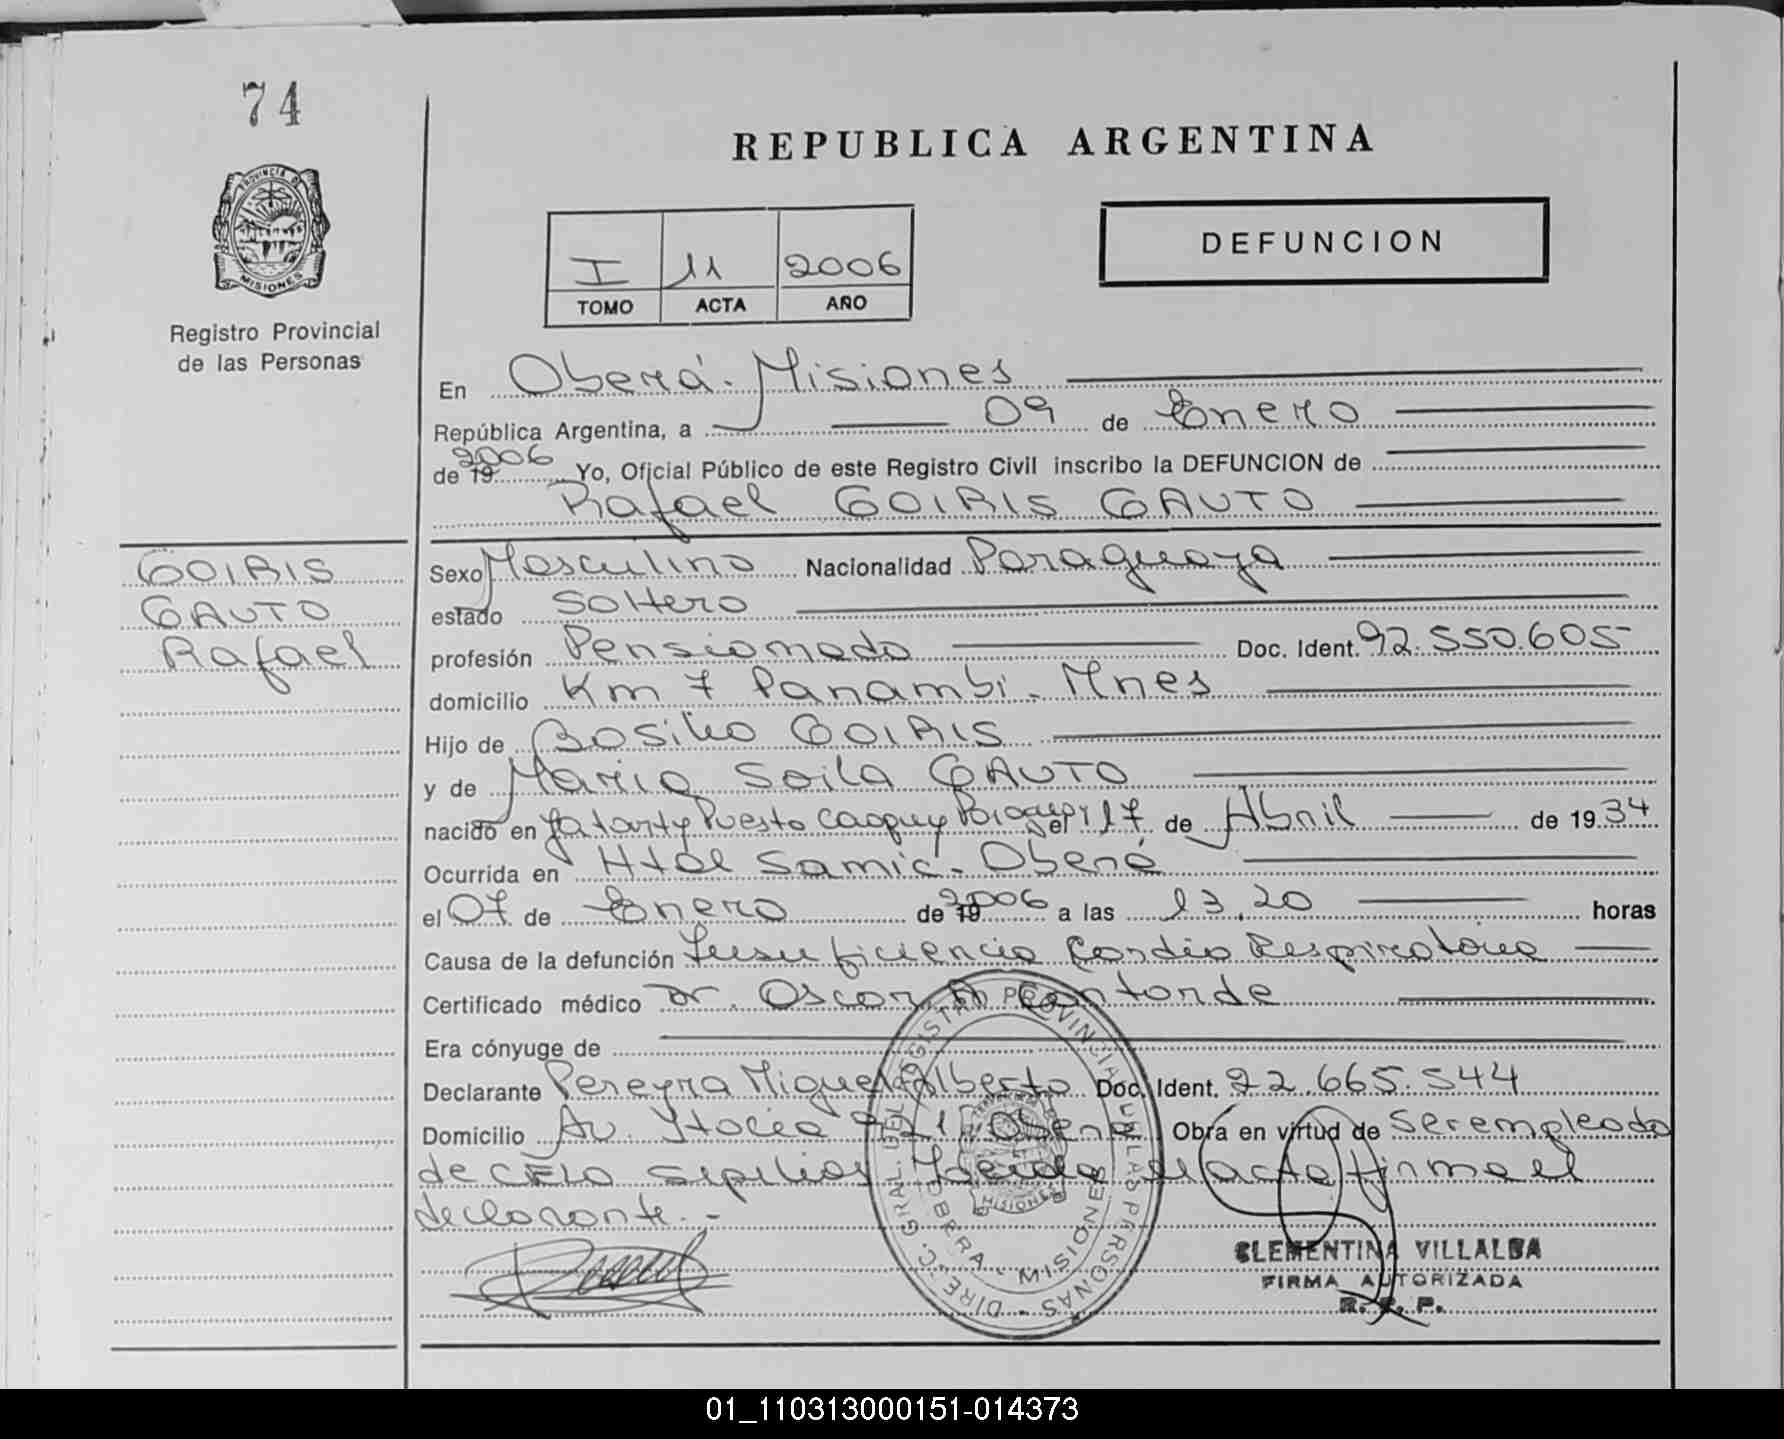 74
REPUBLICA ARGENTINA
PROVINCIA DE
MISIONES
Registro Provincial
de las Personas
I 11 2006
TOMO ACTA AÑO
DEFUNCION
En Oberá - Misiones
República Argentina, a 09 de Enero
de 19 2006 Yo, Oficial Público de este Registro Civil inscribo la DEFUNCION de
Rafael GOIRIS GAUTO
GOIRIS
GAUTO
Rafael
Sexo Masculino Nacionalidad Paraguaya
estado Soltero
profesión Pensionado Doc. Ident. 92.550.605
domicilio Km 7 Panambi - Mnes
Hijo de Basilio GOIRIS
y de Maria Soila GAUTO
nacido en Puesto el 17 de Abril de 19 34
Ocurrida en Htal Samic - Oberá
el 07 de Enero de 19 2006 a las 13,20 horas
Causa de la defunción Insuficiencia Cardio Respiratoria
Certificado médico Dr. Oscar A
Era cónyuge de
Declarante Pereyra Miguel Alberto Doc. Ident. 22.665.544
Domicilio Av. Oberá Obra en virtud de ser empleado
de sepelios Leida el acta firma el
declarante.-
DIREC. GRAL. DEL REGISTRO PROVINCIAL DE LAS PERSONAS
OBERA - MISIONES
MISIONES
CLEMENTINA VILLALBA
FIRMA AUTORIZADA
R. P. P.
01_110313000151-014373